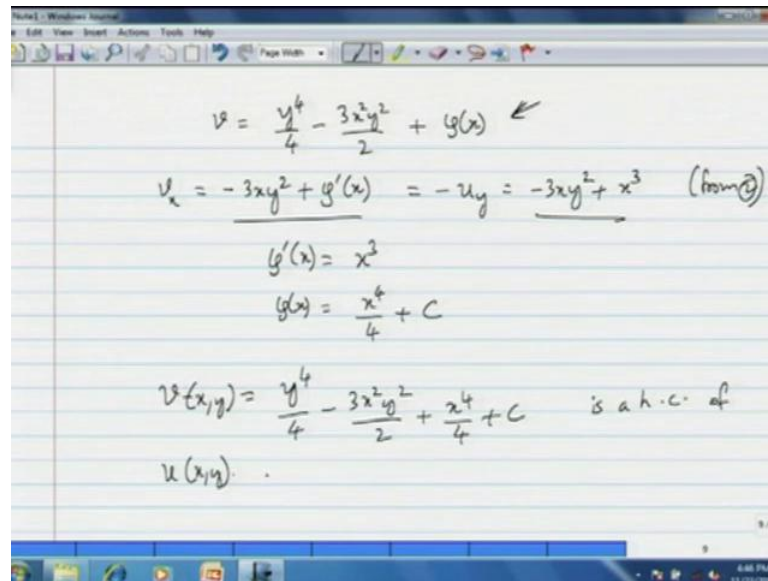 Note1 - Windows Journal
Edit View Insert Actions Tools Help
Page Width
v = y⁴/4 - 3x²y²/2 + φ(x)
vₓ = -3xy² + φ'(x) = -u_y = -3xy² + x³ (from ②)
φ'(x) = x³
φ(x) = x⁴/4 + C
v(x,y) = y⁴/4 - 3x²y²/2 + x⁴/4 + C is a h.c. of
u(x,y).
9
6:46 PM